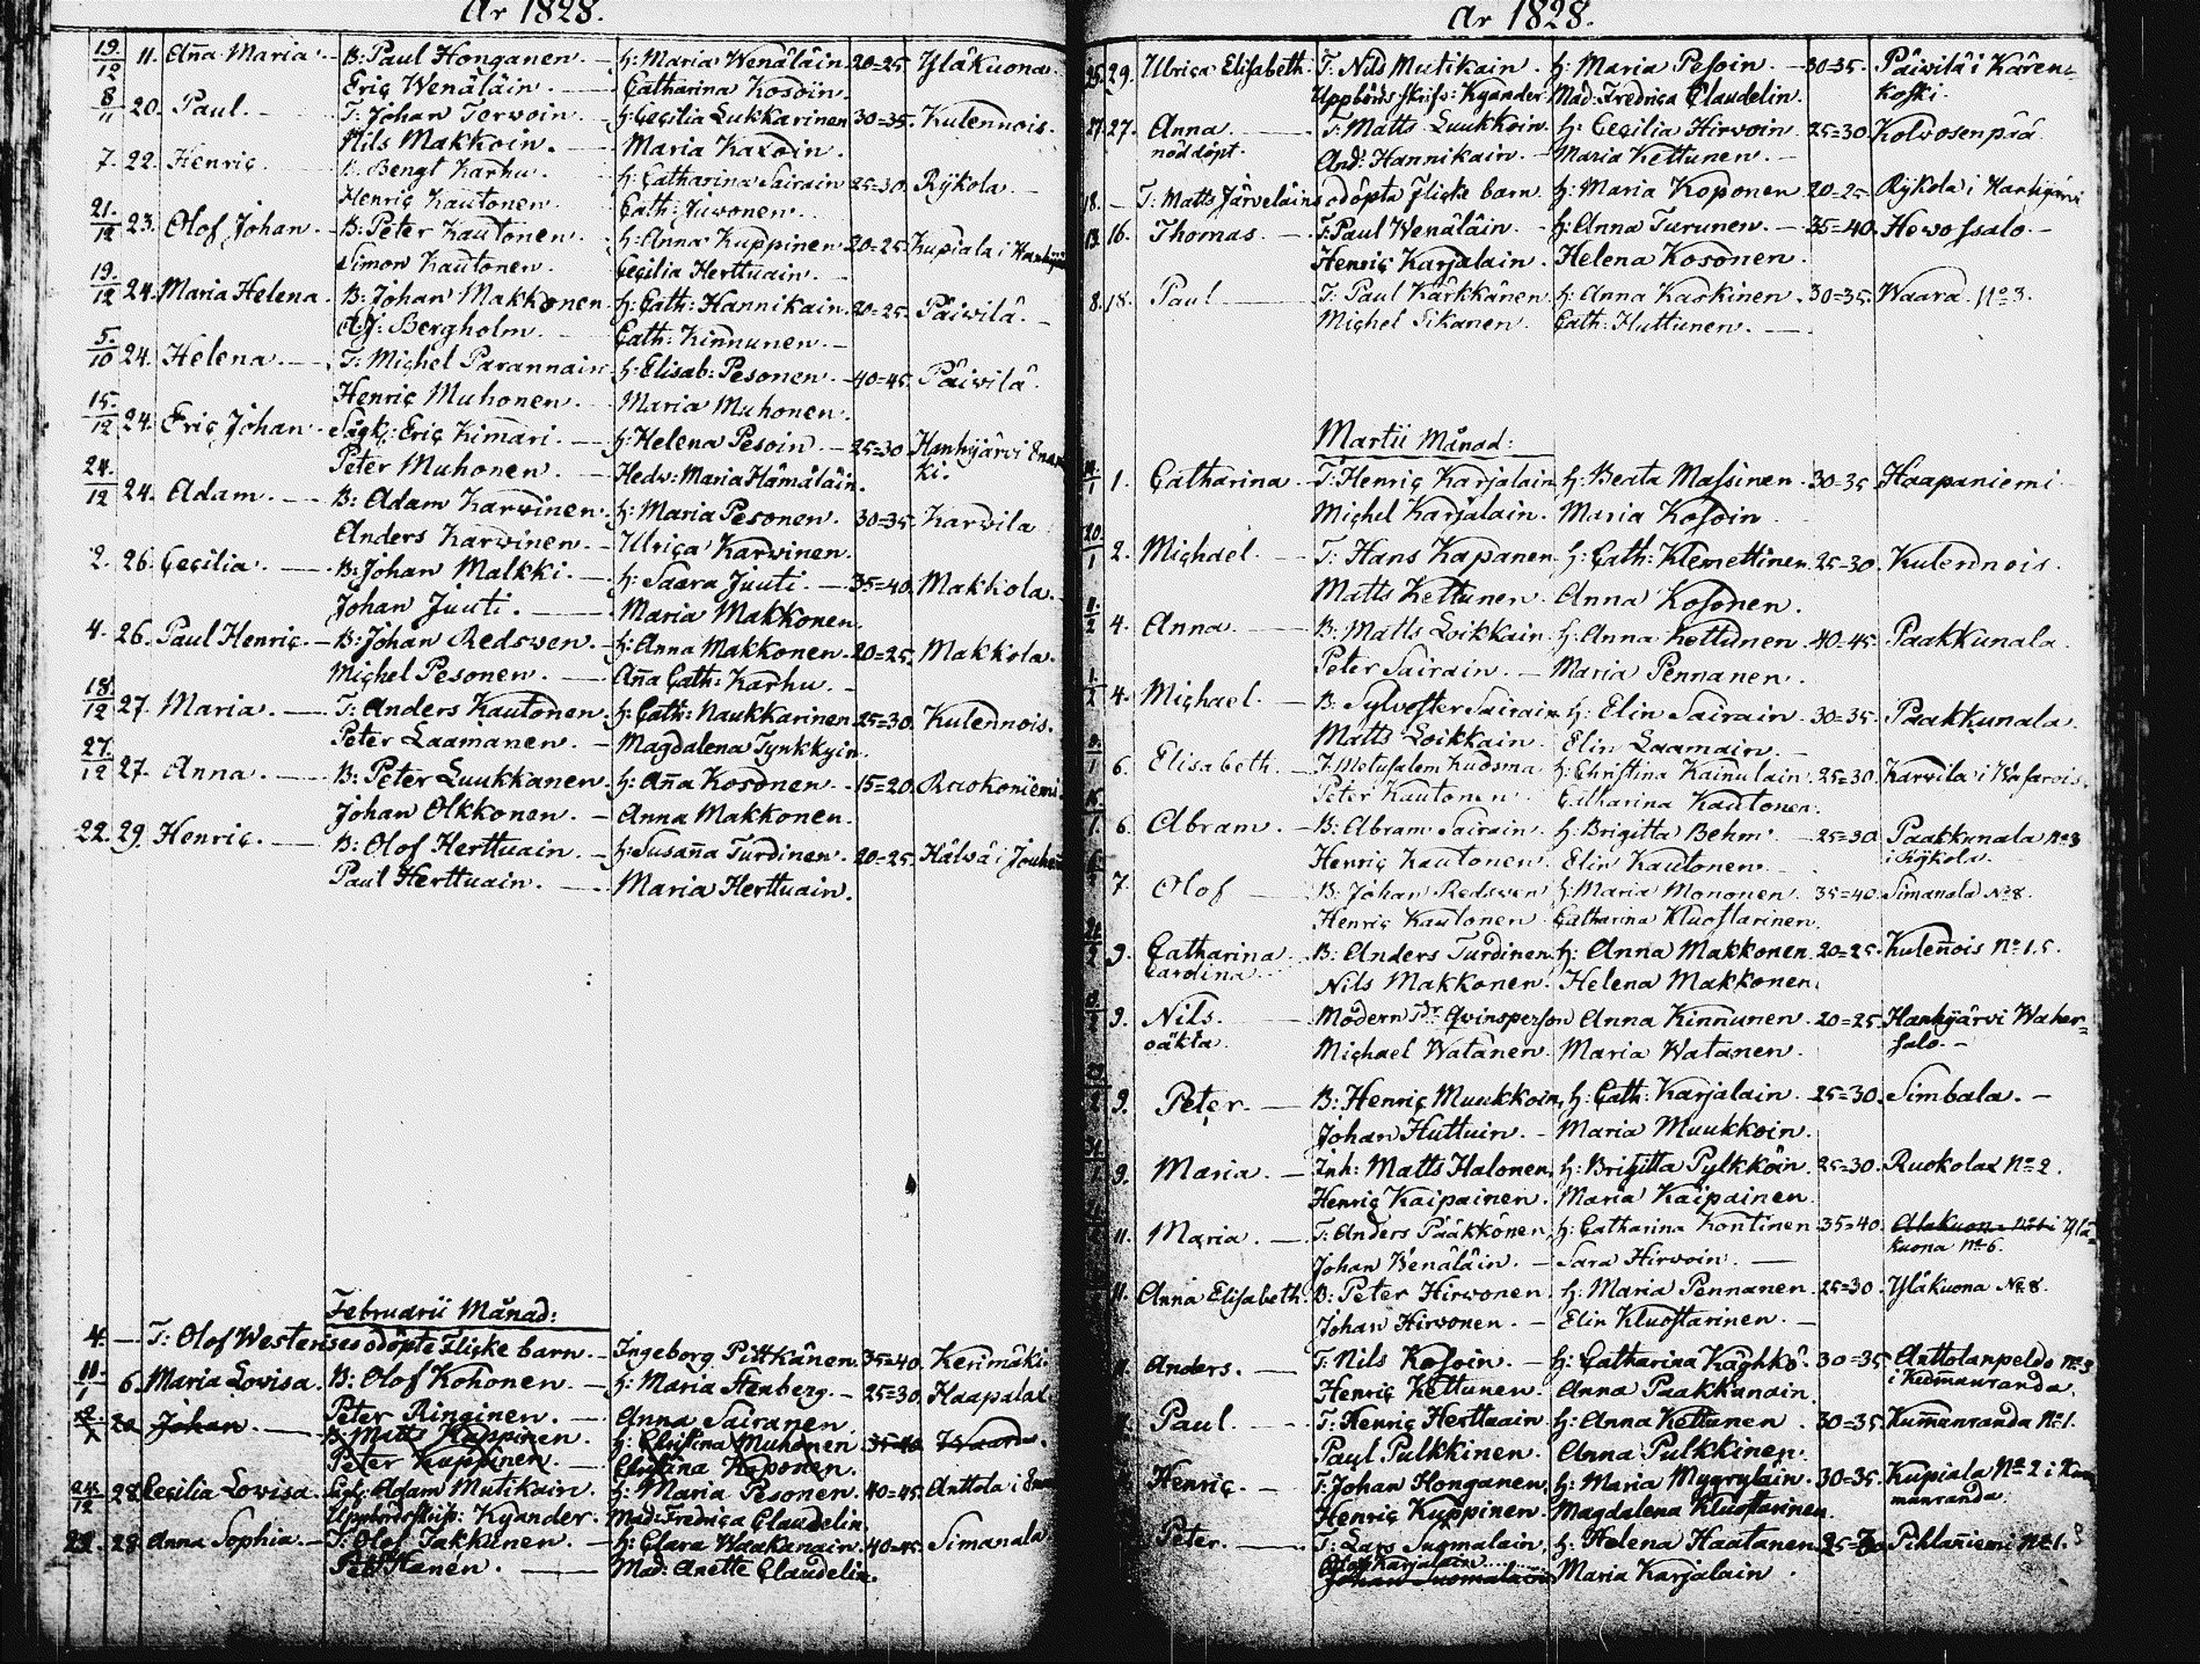 Är 1828.
19./12 11. Aña Maria. B: Paul Honganen. h: Maria Wenäläin. 20=25. Yläkuona.
Eric Wenäläin. Catharina Kosoin.
8/11 20. Paul. T: Johan Terwoin. h: Cecilia Lukkarinen 30=35. Kulennois.
Nils Makkoin. Maria Kaxoin.
7. 22. Henric. B. Bengt Karhu. h: Catharina Sairain 25=30. Rÿkola.
Henric Kautonen. Cath: Juvonen.
21./12 23. Olof Johan. B: Peter Kautonen. h: Anna Kuppinen 20=25. Kupiala i
Simon Kautonen. Cecilia Herttuain.
19./12 24. Maria Helena. B: Johan Makkonen. h: Cath: Hannikain. 20=25. Päivilä.
A:J: Bergholm. Cath: Kinnunen.
5./10 24. Helena. T: Michel Parannain h: Elisab: Pesonen. 40=45. Päivilä.
Henric Muhonen. Maria Muhonen.
15./12 24. Eric Johan. Eric Kimari. h: Helena Pesoin. 25=30 Hanhijärvi Enan
Peter Muhonen. Hedv: Maria Hämäläin. ki.
24./12 24. Adam. B: Adam Karvinen. h: Maria Pesonen. 30=35. Karvila
Anders Karvinen. Ulrica Karvinen.
2. 26. Cecilia. B: Johan Malkki. h: Saara Juuti. 35=40. Makkola.
Johan Juuti. Maria Makkonen.
4. 26. Paul Henric. B: Johan Redsven. h: Anna Makkonen. 20=25. Makkola.
Michel Pesonen. Aña Cath: Karhu.
18./12 27. Maria. T: Anders Kautonen. h: Cath: Naukkarinen 25=30. Kulennois.
Peter Laamanen. Magdalena Tynkkyin.
27./12 27. Anna. B: Peter Luukkanen. h: Aña Kosonen. 15=20. Raokoniemi.
Johan Olkkonen. Anna Makkonen.
22. 29. Henric. B: Olof Herttuain. h: Susaña Turdinen. 20=25. Hälvä i
Paul Herttuain. Maria Herttuain.
Februarii Månad:
4. T: Olof Westerises odöpte Flicke barn. Ingeborg Pittkänen. 35=40. Kerimäki.
11/1 6. Maria Lovisa. B: Olof Kohonen. h: Maria Stenberg. 25=30. Haapalax.
Peter Ringinen. Anna Sairanen.
20 Johan. B: Matts Kuppinen. h: Christina Muhonen 35=40. Waara.
Peter Kuppinen. Christina Koponen.
24./12 28. Cecilia Lovisa. Adam Mutikain. h: Maria Pesonen. 40=45. Anttola i
Uppbördsskrifv: Kyander. Mad: Fredrica Claudelin.
29. 28 Anna Sophia. T: Olof Takkunen. h: Clara Waakanain. 40=45. Simanala
Hanén. Mad: Anette Claudelin.
Är 1828.
25. 29. Ulrica Elisabeth. T. Nils Mutikain. h: Maria Pesoin. 30=35. Päivilä i Kären=
Uppbördsskrifv: Kyander. Mad: Fredrica Claudelin. koski.
27. 27. Anna. T: Matts Luukkoin. h: Cecilia Hirvoin. 25=30. Kolvosenpää
nöddöpt. And: Hannikain. Maria Kettunen.
18. T: Matts Järveläins odöpta Flicke barn. h: Maria Koponen. 20=25. Rÿkola i Hanhijärvi
13. 16. Thomas. T: Paul Wenäläin. h: Anna Turunen. 35=40. Hevossalo.
Henric Karjalain. Helena Kosonen.
8. 18. Paul T: Paul Kärkkänen h: Anna Kaskinen. 30=35. Waara. No 3.
Michel Sikanen. Cath: Huttunen.
Martii Månad:
1. Catharina. T: Henric Karjalain h: Beata Massinen. 30=35 Haapaniemi
Michel Karjalain. Maria Kosoin
20./1 2. Michael. T: Hans Kapanen. h: Cath: Klemettinen 25=30. Kulennois.
Matts Kettunen. Anna Kosonen.
4. Anna. B: Matts Loikkain. h: Anna Kettunen. 40=45. Paakkunala.
Peter Sairain. Maria Pennanen.
1./2 4. Michael. B: Sylvester Sairain. h: Elin Sairain. 30=35. Paakkunala.
Matts Loikkain. Elin Laamain.
6. Elisabeth. T: Metusalem Kuosma. h: Christina Kainulain. 25=30. Karvila i
Peter Kautonen. Catharina Kautonen.
6. Abram. B: Abram Sairain. h: Brigitta Behm. 25=30. Paakkunala No 3
Henric Kautonen. Elin Kautonen. i Rÿkola.
7. Olof B: Johan Redsven h: Maria Mononen. 35=40. Simanala No 8.
Henric Kautonen Catharina Kluostarinen.
9. Catharina B: Anders Turdinen. h: Anna Makkonen. 20=25. Kuleñois No 1.5.
Carolina. Nils Makkonen. Helena Makkonen.
9. Nils. Modern Qvinsperson Anna Kinnunen. 20=25. Hanhijärvi Waher=
oäkta. Michael Watanen. Maria Watanen. salo.
9. Peter. B: Henric Muukkoin. h: Cath: Karjalain. 25=30. Simbala.
Johan Huttuin. Maria Muukkoin.
9. Maria. Inh: Matts Halonen. h: Brigitta Pylkkön. 25=30. Ruokolax No 2.
Henric Kaipainen. Maria Kaipainen.
11. Maria. T: Anders Pääkkönen. h: Catharina Kontinen 35=40. Alakuona No i Ylä=
Johan Wenäläin. Sara Hirvoin. kuona No 6.
11. Anna Elisabeth. B: Peter Hirvonen. h: Maria Pennanen. 25=30. Yläkuona No 8.
Johan Hirvonen. Elin Kluostarinen.
Anders. T: Nils Kosoin. h: Catharina Käghkö. 30=35. Anttolanpeldo No 3
Henric Kettunen. Anna Paakkunain. i Kummanranda.
Paul. T: Henric Herttuain h: Anna Kettunen. 30=35. Kummanranda No 1.
Paul Pulkkinen. Anna Pulkkinen.
Henric. T: Johan Honganen. h: Maria Mygrylän. 30=35. Kupiala No 2 i Kum
Henric Kuppinen. Magdalena Kluostarinen. manranda.
Peter. T: Lars Suomalain. h: Helena Haatanen. 25=30. Pihlaniemi No 1.
Olof Karjalain
Johan Suomalain Maria Karjalain.